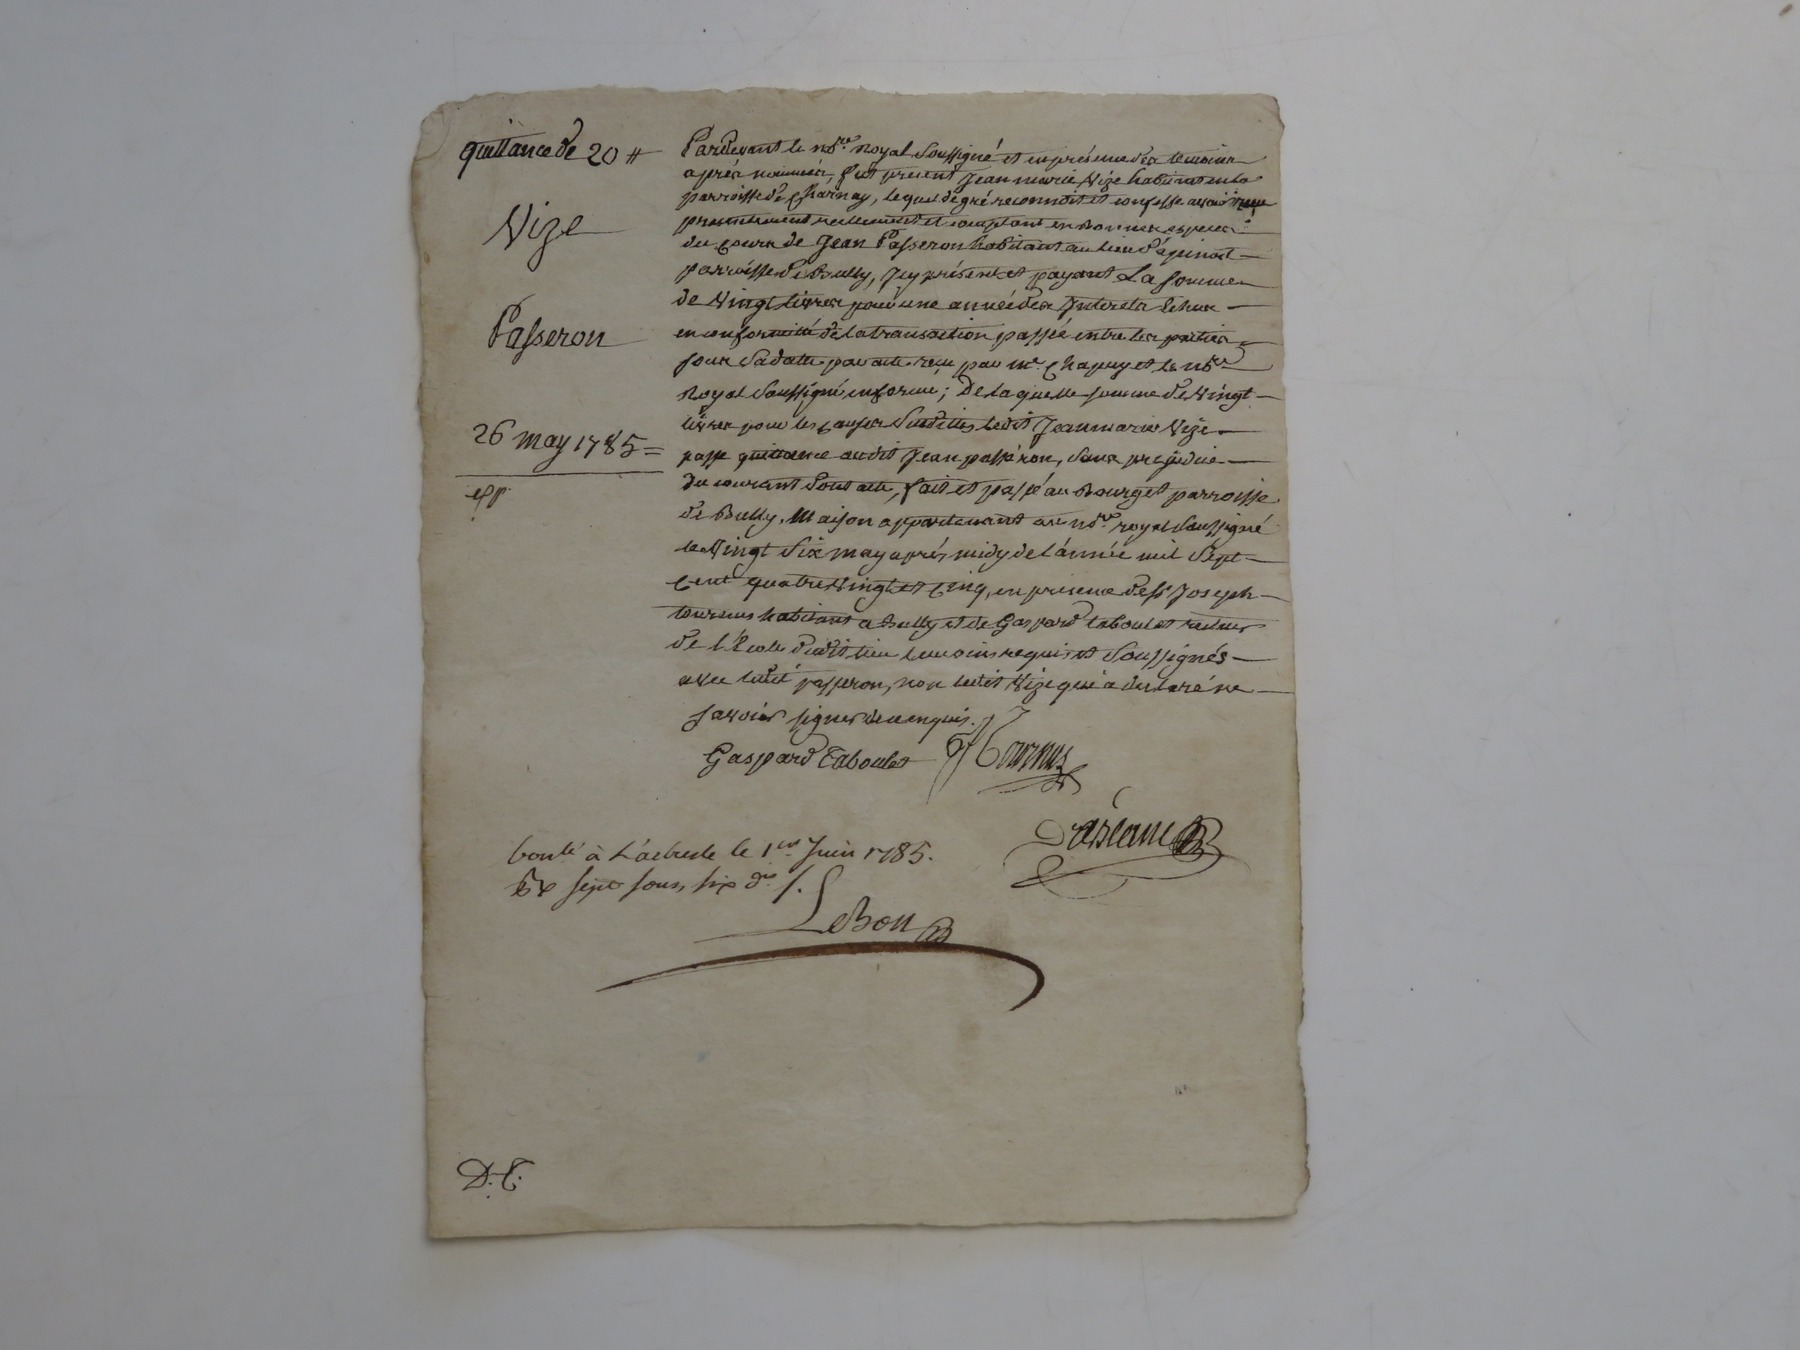 quittance de 20 ₶
Vize
Passeron
26 may 1785 =
exp.
Pardevant le nore. Royal soussigné et en présence des temoins
après nommés, fut present Jean marie Vize habitant en la
parroisse de Charnay, lequel de gré reconnoit et confesse avoir reçu
presentement reellement et comptant en bonnes especes
du cours de Jean Passeron habitant au lieu d'apinost
parroisse de Bully, icy présent et payant La somme
de Vingt livres pour une année des Interets Echue
en conformité de la transaction passée entre les parties
sous sa datte par acte reçu par me. Chapuy et le nore.
Royal soussigné en forme ; De laquelle somme de Vingt
livres pour les causes susdittes ledit Jean marie Vize
passe quittance audit Jean passeron, sans prejudice
du courant Dont acte, fait et passé au Bourg et parroisse
de Bully, Maison appartenant au nore. royal soussigné
le Vingt Six may après midy de l'année mil Sept
Cent quatre Vingt et Cinq, en présence de sr. Joseph
tournus habitant a Bully et de Gaspard taboulet recteur
de l'école dudit lieu temoins requis et soussignés
avec ledit passeron, non ledit Vize qui a declaré ne
savoir signer de ce enquis.
Gaspard Taboulet J Tournus
bonté à L'arbresle le 1er. Juin 1785.
sept sous, six drs.
LeBon
D.C.